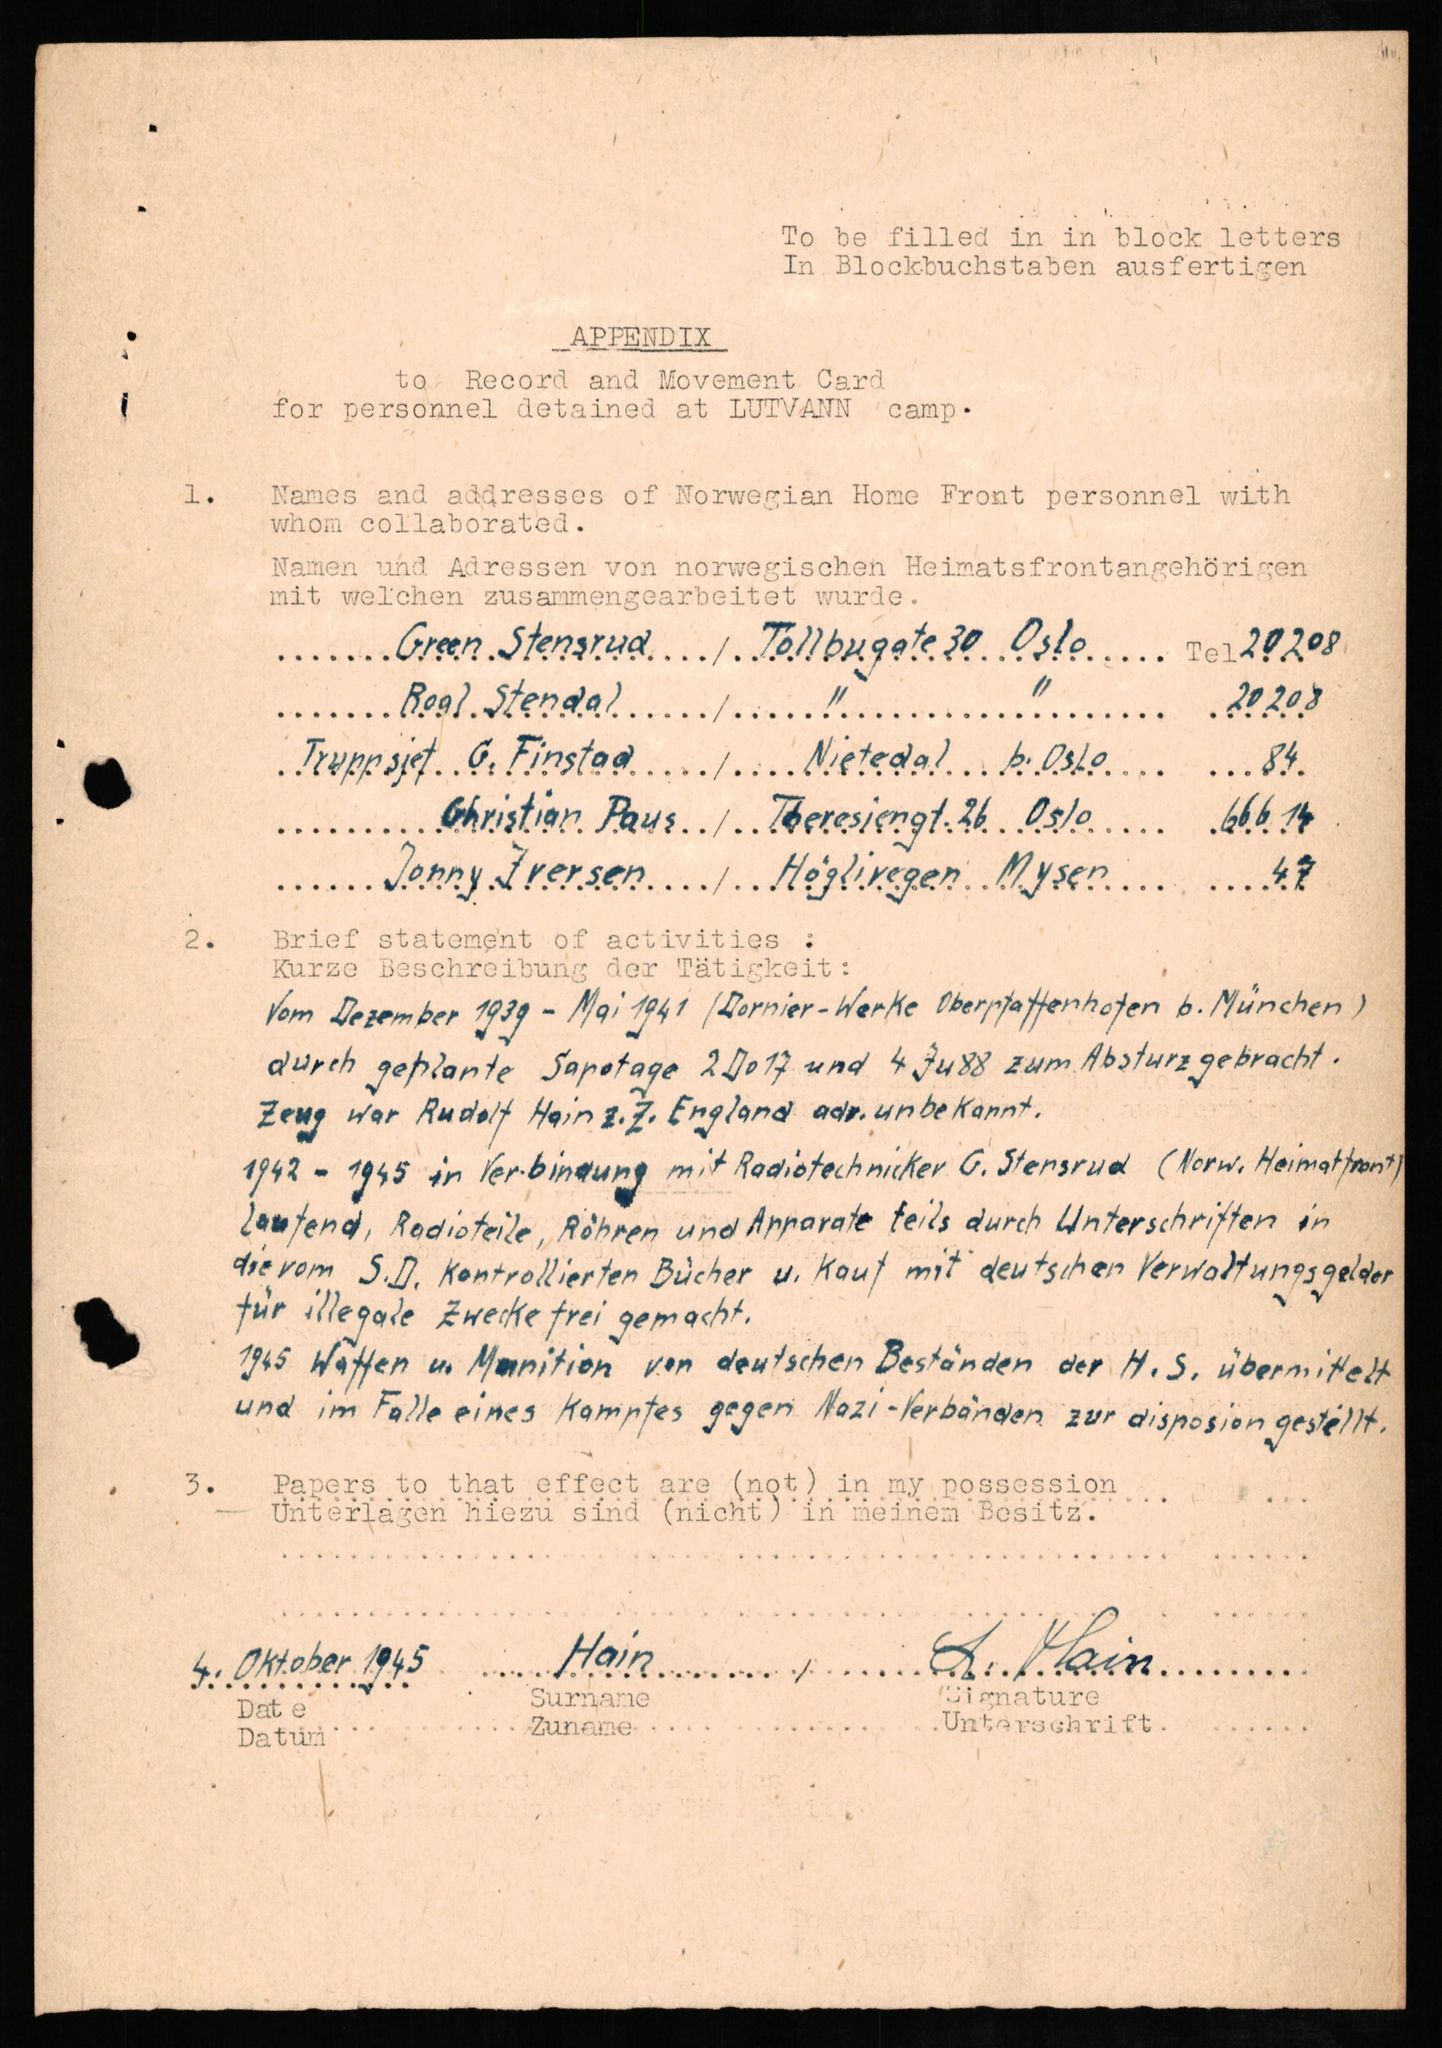 To be filled in in block letters
In Blockbuchstaben ausfertigen
APPENDIX
to Record and Movement Card
for personnel detained at LUTVANN camp.
1. Names and addresses of Norwegian Home Front personnel with
whom collaborated.
Namen und Adressen von norwegischen Heimatsfrontangehörigen
mit welchen zusammengearbeitet wurde.
Green Stensrud / Tollbugate 30 Oslo Tel 20208
Roal Stendal / " " 20208
Truppsjef G. Finstad / Nietedal b. Oslo 84
Christian Paus / Theresiengt. 26 Oslo 666 14
Jonny Iversen / Höglivegen Mysen 47
2. Brief statement of activities :
Kurze Beschreibung der Tätigkeit:
Vom Dezember 1939 - Mai 1941 (Dornier-Werke Oberpfaffenhofen b. München)
durch geplante Sapotage 2 Do 17 und 4 Ju 88 zum Absturz gebracht.
Zeug war Rudolf Hain z. Z. England adr. unbekannt.
1942 - 1945 in Verbindung mit Radiotechnicker G. Stensrud (Norw. Heimatfront)
laufend, Radioteile, Röhren und Apparate teils durch Unterschriften in
die vom S.D. Kontrollierten Bücher u. Kauf mit deutschen Verwaltungsgelder
für illegale Zwecke frei gemacht.
1945 Waffen u. Munition von deutschen Beständen der H. S. übermittelt
und im Falle eines Kampfes gegen Nazi-Verbänden zur disposion gestellt.
3. Papers to that effect are (not) in my possession
Unterlagen hiezu sind (nicht) in meinem Besitz.
4. Oktober 1945 Hain / A. Hain
Date Surname Signature
Datum Zuname Unterschrift